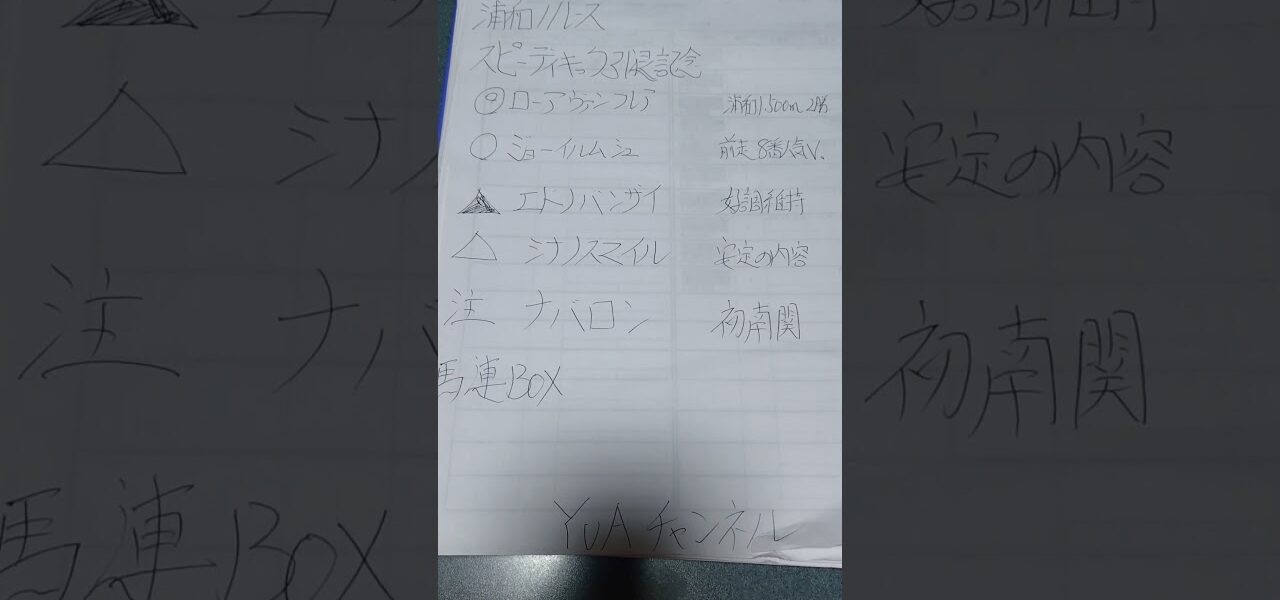 浦和11レス
スピーディキック引退記念
◎ ローアヴァンフレア 浦和1,500m2勝
○ ジョーイルムシェ 前走8番人気V.
▲ エドノバンザイ 好調維持
△ ミナノスマイル 安定の内容
注 ナバロン 初南関
馬連BOX
YUAチャンネル